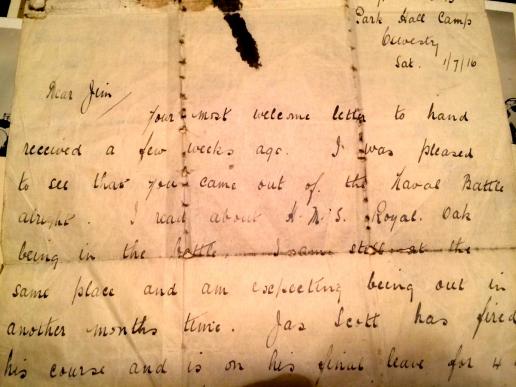 Park Hall Camp
Oswestry
Sat. 1/7/16
Dear Jim
Your most welcome letter to hand
received a few weeks ago. I was pleased
to see that you came out of the Naval Battle
alright. I read about H.M.S. Royal Oak
being in the battle, I am still at the
same place and am expecting being out in
another months time. Jas Scott has fired
his course and is on his final leave for 4